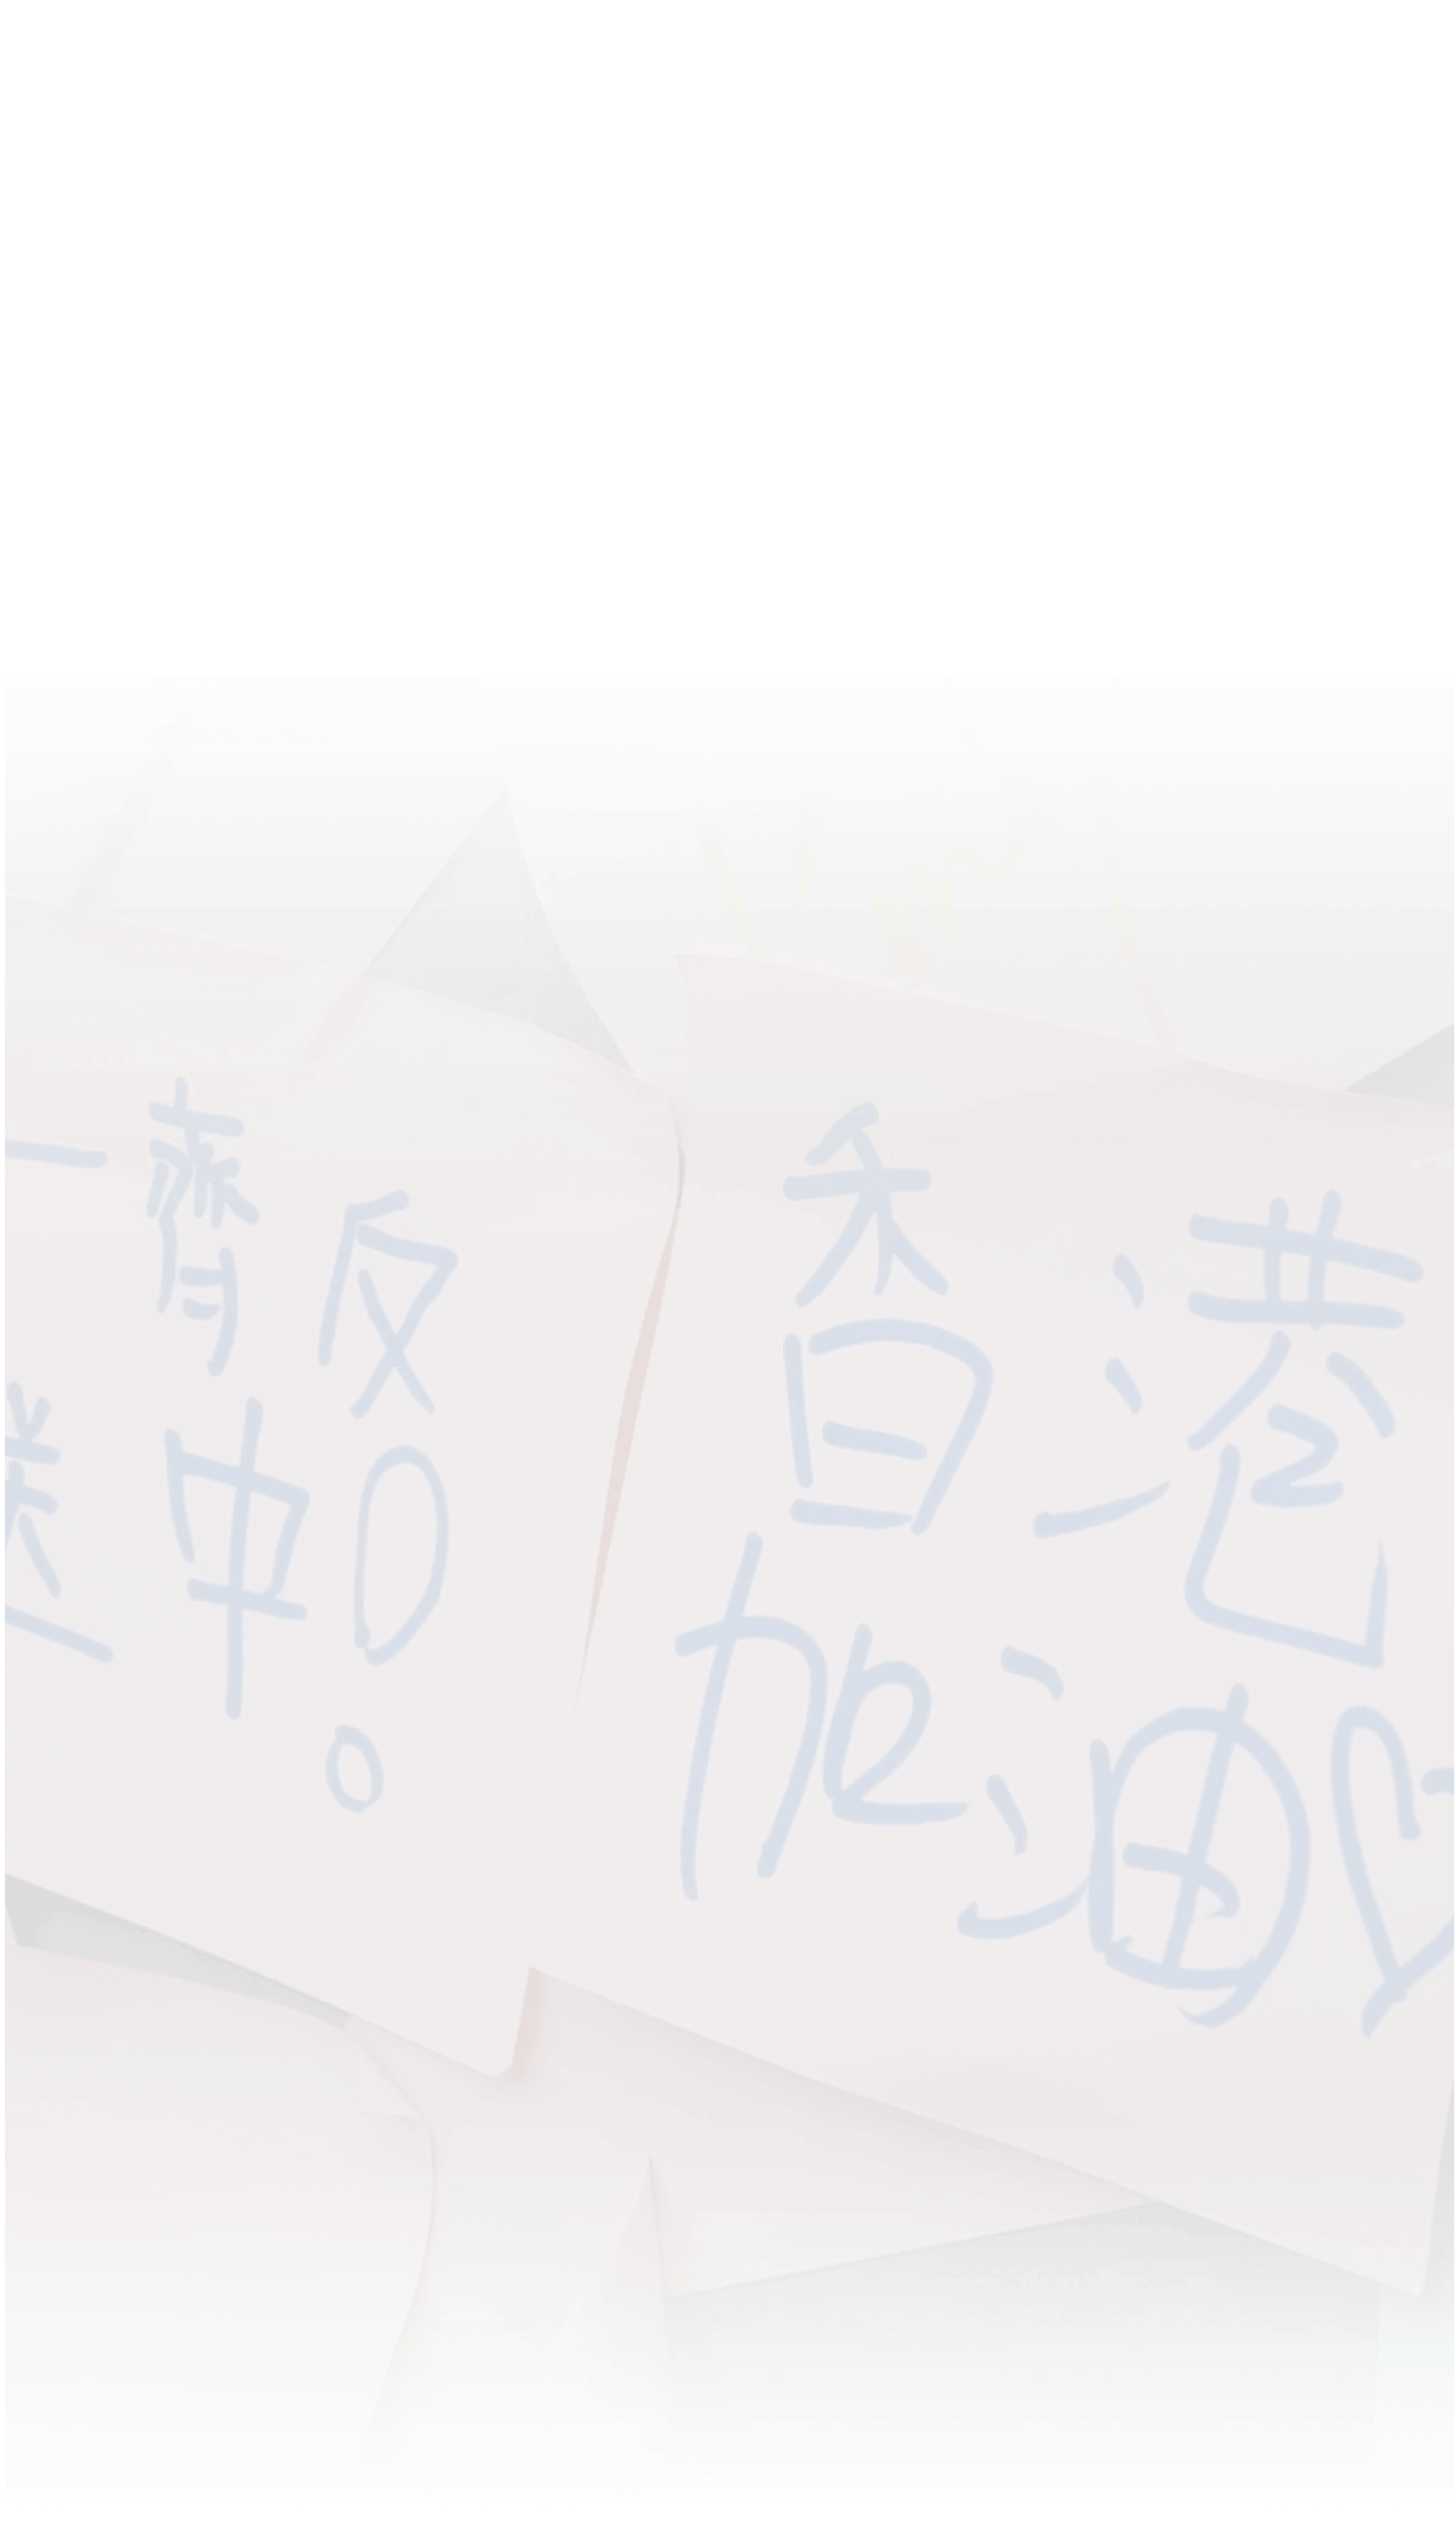 一齊反
中
香港
加油♡